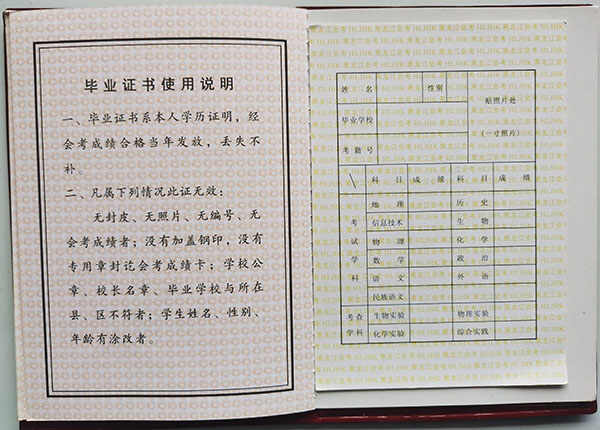 毕业证书使用说明
一、毕业证书系本人学历证明，经
会考成绩合格当年发放，丢失不
补。
二、凡属下列情况此证无效：
无封皮、无照片、无编号、无
会考成绩者；没有加盖钢印，没有
专用章封讫会考成绩卡；学校公
章、校长名章、毕业学校与所在
县、区不符者；学生姓名、性别、
年龄有涂改者。
黑龙江会考 HLJHK 黑龙江会考 HLJHK 黑龙江会考
姓 名 性别 贴照片处
毕业学校 （一寸照片）
考籍号
科 目 成 绩 科 目 成 绩
地 理 历 史
考 信息技术 生 物
试 物 理 化 学
学 数 学 政 治
科 语 文 外 语
民族语文
考查 生物实验 物理实验
学科 化学实验 综合实践